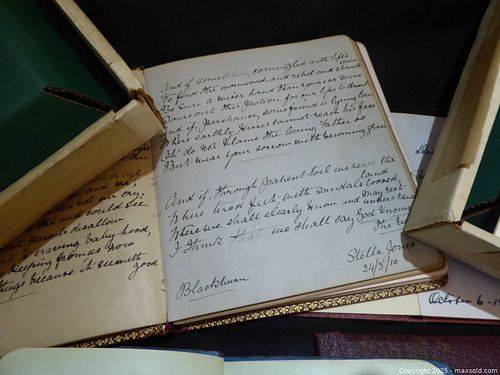 And if, sometimes, commingled with life's wine,
We find the wormwood and rebel and shrink
Be sure a wiser hand than yours or mine
Pours out this potion for our lips to drink
And if, perchance, some friend is lying low
Where earthly kisses cannot reach his face
Oh! do not blame the loving Father so
But wear your sorrow with becoming grace
And if, through patient toil we reach the land
Where tired feet, with sandals loosed, may rest
Where we shall clearly know and understand
I think we shall say God knows
The
Stella Jones
24/3/10
Blackburn
not our cry,
would see.
disallow
craving baby hood,
Now
things because it seemeth
good
October 6-19
Copyright 2025 - maxsold.com